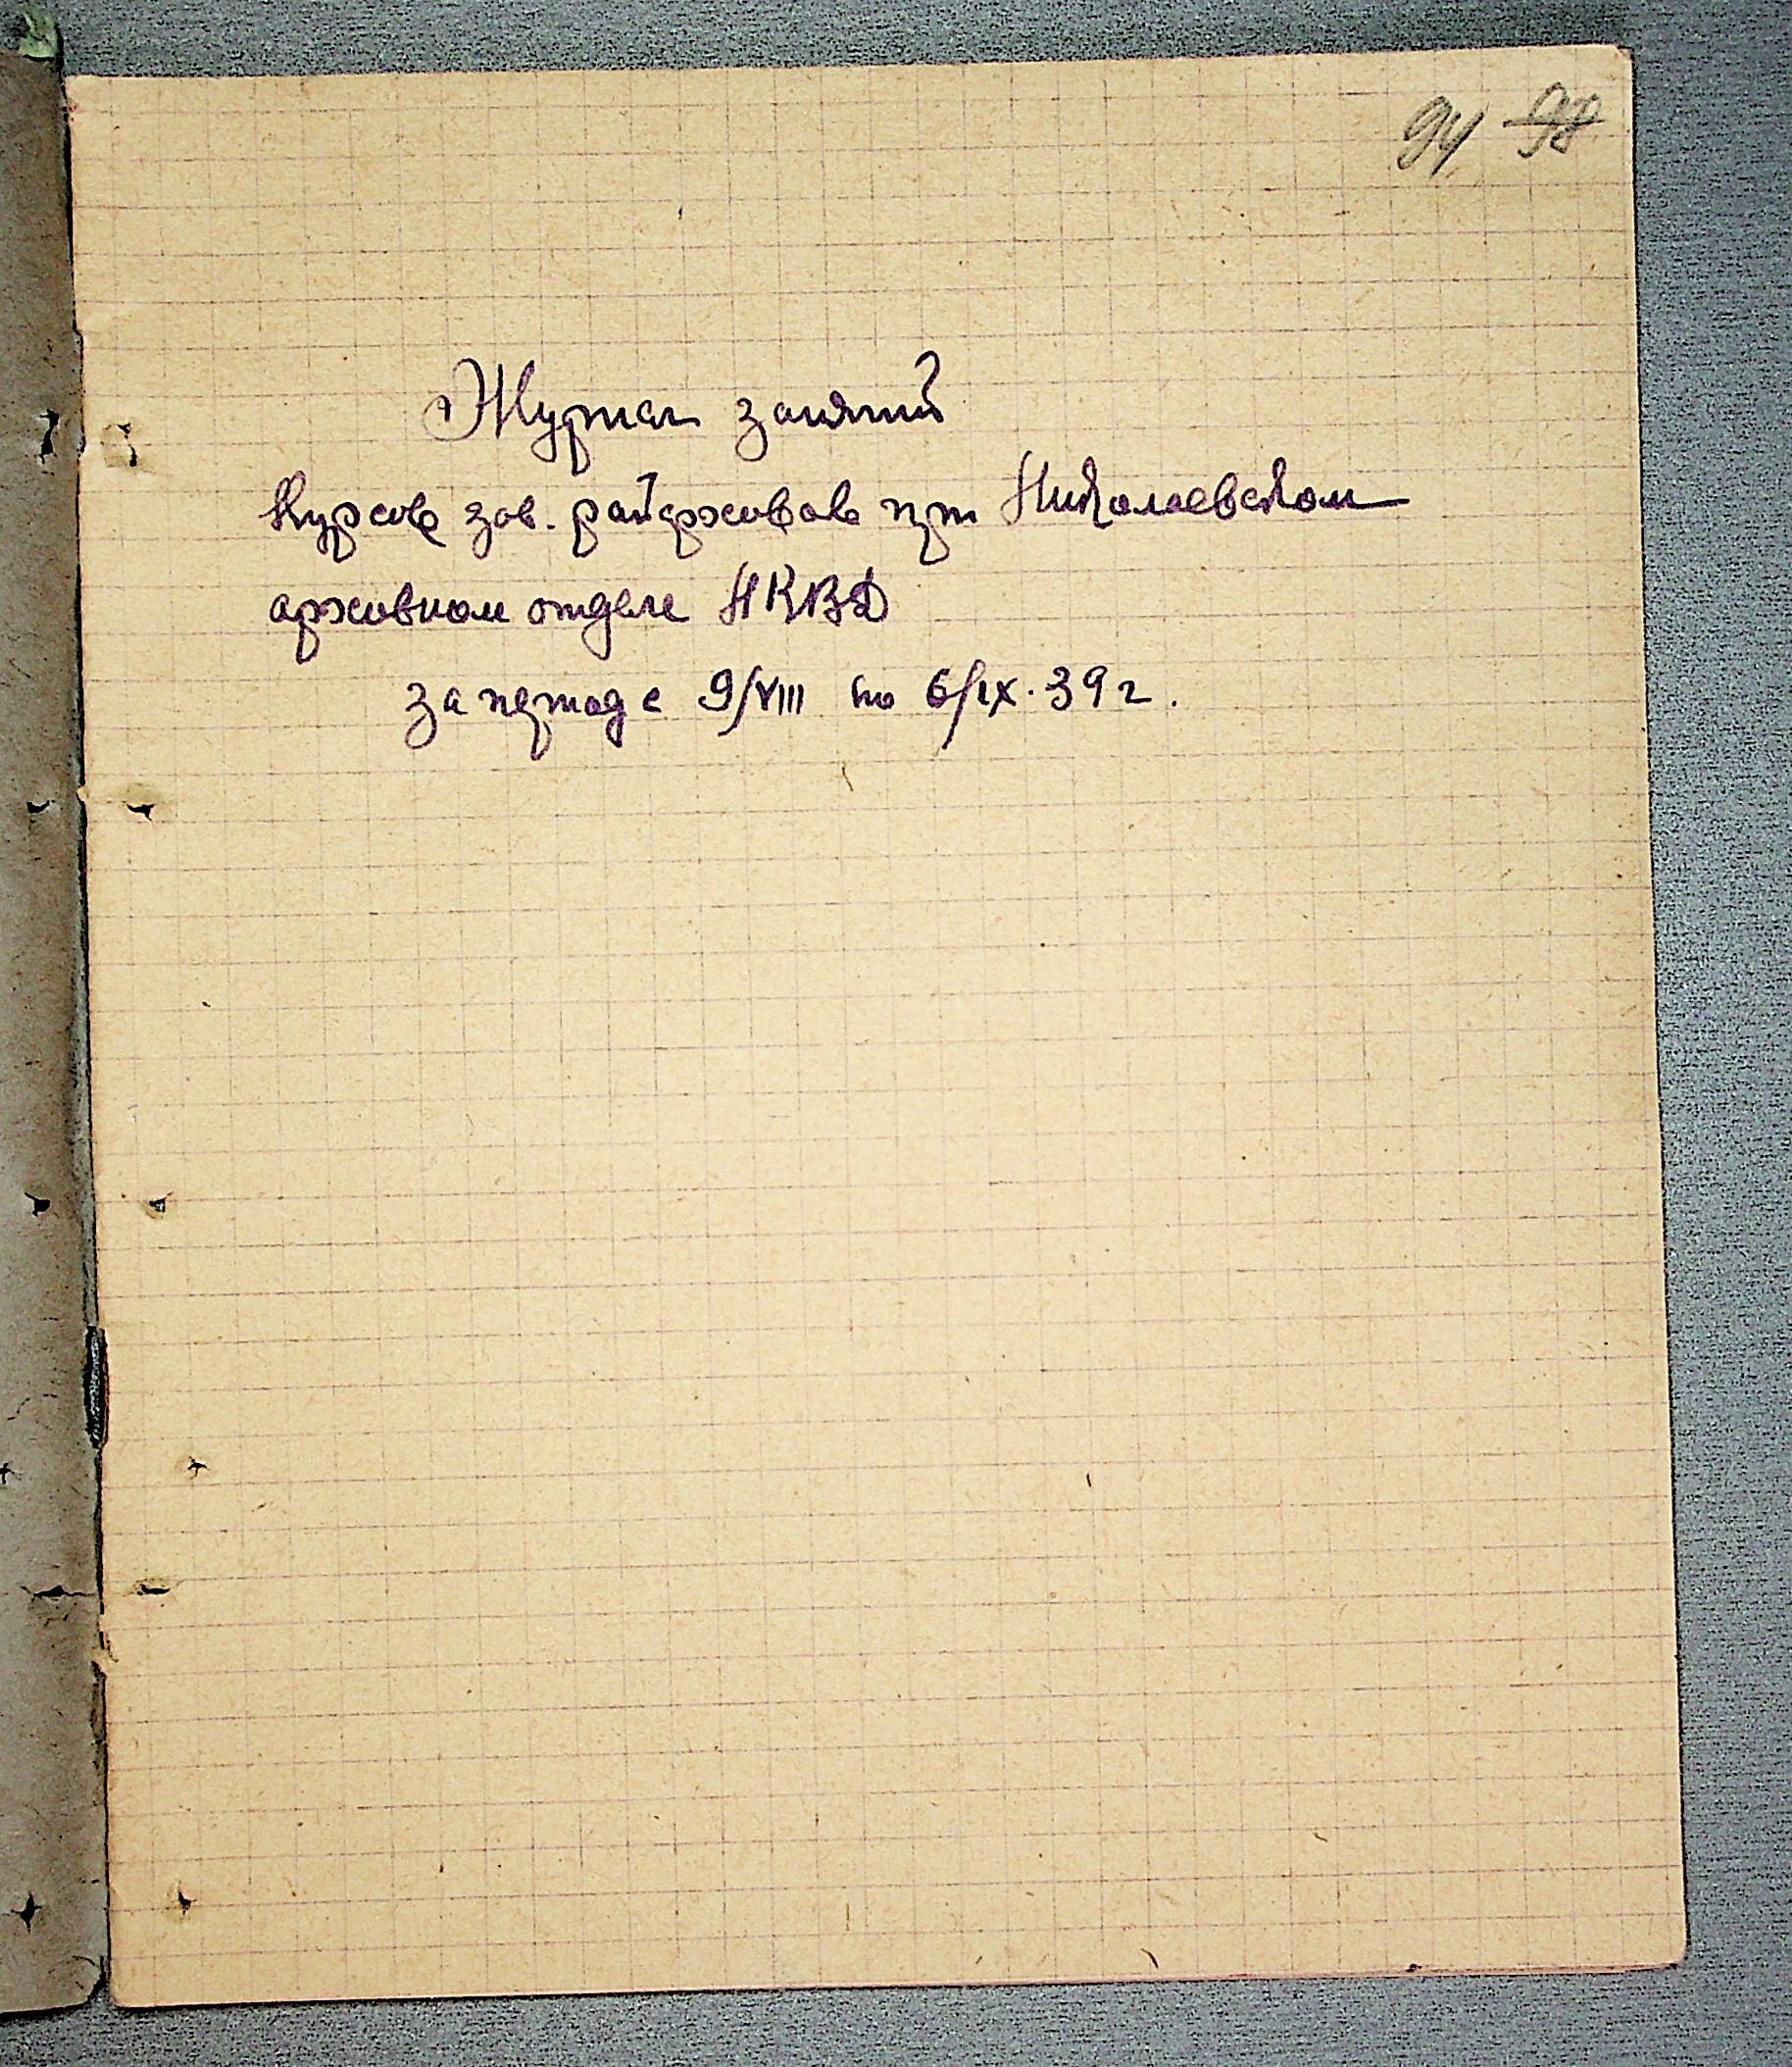 94 98
Журнал занятий
Курсов зав. райархивов при Николаевском
архивном отделе НКВД
за период с 9/VIII по 6/IX. 39 г.